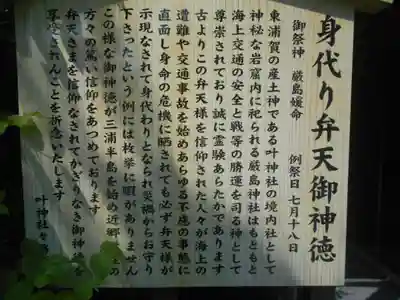 身代り弁天御神徳
御祭神 厳島媛命 例祭日 七月十八日
東浦賀の産土神である叶神社の境内社として
神秘な岩窟内に祀られる厳島神社はもともと
海上交通の安全と戦等の勝運を司る神として
尊崇されており誠に霊験あらたかであります
古よりこの弁天様を信仰された人々が海上の
遭難や交通事故を始めあらゆる不慮の事態に
直面し身命の危機に晒されても必ず弁天様が
示現なされて身代わりとなられ災禍からお守り
下さったという例には枚挙に暇がありません
この様な御神徳が三浦半島を始め近郷の
方々の篤い信仰をあつめております
弁天さまを信仰なされてかぎりなき御神徳を
享受されんことを祈念いたします
叶神社